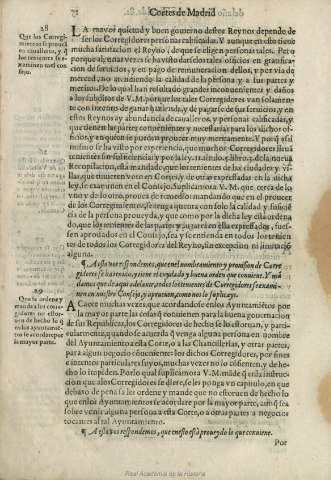 Cortes de Madrid
28
Que las Corregi-
mientos se prouean
en caualleros, y q̃
los tenientes se e-
xaminen en el con-
sejo.
LA mayor quietud y buen gouierno destos Reynos depende de
ser los Corregidores personas calificadas. Y aunque en esto tiene
mucha satisfacion el Reyno, de que se eligen personas tales. Pero
porque algunas vezes se ha visto darse los tales officios en gratifica-
cion de seruicios, y en pago de remuneracion dellos, y por via de
merced, no atendiendo a la calidad de la persona y a sus partes y
meritos. De lo qual han resultado grandes inconuenientes y daños
a los subditos de V. M. porque los tales Corregidores van solamen-
te con intento de ganar hazienda, y de pagarse de sus seruicios, y en
estos Reynos ay abundancia de caualleros, y personas calificadas, y
que tienen las partes conuenientes y necessarias para los dichos offi-
cios, y en quien se pueden proueer muy enteramente. Y porq̃ assi
mismo se ha visto por experiencia, que muchos Corregidores lleuã
tenientes sin suficiencia: y por la ley. 11. titulo. 5. libro. 3. de la nueua
Recopilacion, està mandado, que los tenientes de las ciudades y vi-
llas, que tuuieren voto en Cortes, y de otras expressadas en la dicha
ley, se examinen en el Consejo. Suplicamos a V. M. que cerca de lo
vno y de lo otro, prouea de remedio: mandando que en el proueer
de los Corregimientos, se tenga quenta con solo la calidad, y suficiẽ
cia de la persona proueyda, y que como por la dicha ley està ordena
do, que los tenientes de las partes y lugares en ella expressados, fues-
sen aprouados en el Consejo, sea y se entienda en todos los teniẽ-
tes de todos los Corregidores del Reyno, sin excepcion ni limitaciõ
alguna.
¶ A esto vos respondemos, que en el nombramiento y prouision de Corre
gidores se ha tenido, y tiene el cuydado y buena orden que conuiene. Y mã
damos que de aqui adelante todos los tenientes de Corregidores se exami-
nen en nuestro Consejo y ayuntamiento, como nos lo suplicays.
29
Que la orden y
mande a los corre-
gidores no estor-
uen de hecho lo q̃
en los ayuntamiẽ-
tos se acordare por
la mayor parte.
ACaece muchas vezes, que acordandose en los Ayuntamiẽtos por
la mayor parte las cosas q̃ conuienen para la buena gouernacion
de sus Republicas, los Corregidores de hecho se lo estoruan, y parti-
cularmente, quando se acuerda q̃ venga alguna persona en nombre
del Ayuntamiento a esta Corte, o a las Chancillerias, y otras partes,
para algun negocio cõueniente: los dichos Corregidores, por fines
e intentos particulares suyos, muchas vezes no lo cõsienten, y de he-
cho lo impiden. Por lo qual suplicamos a V. M. mãde q̃ en la instruc-
cion que a los Corregidores se diere, se les ponga vn capitulo, en que
debaxo de pena se les ordene y mande que no estoruen de hecho lo
que en los Ayuntamientos se acordare por la mayor parte, aunq̃ sea
sobre venir alguna persona a esta Corte, o a otras partes a negocios
tocantes al tal Ayuntamiento.
¶ A esto vos respondemos, que en esto està proueydo lo que conuiene.
Por
Real Academia de la Historia